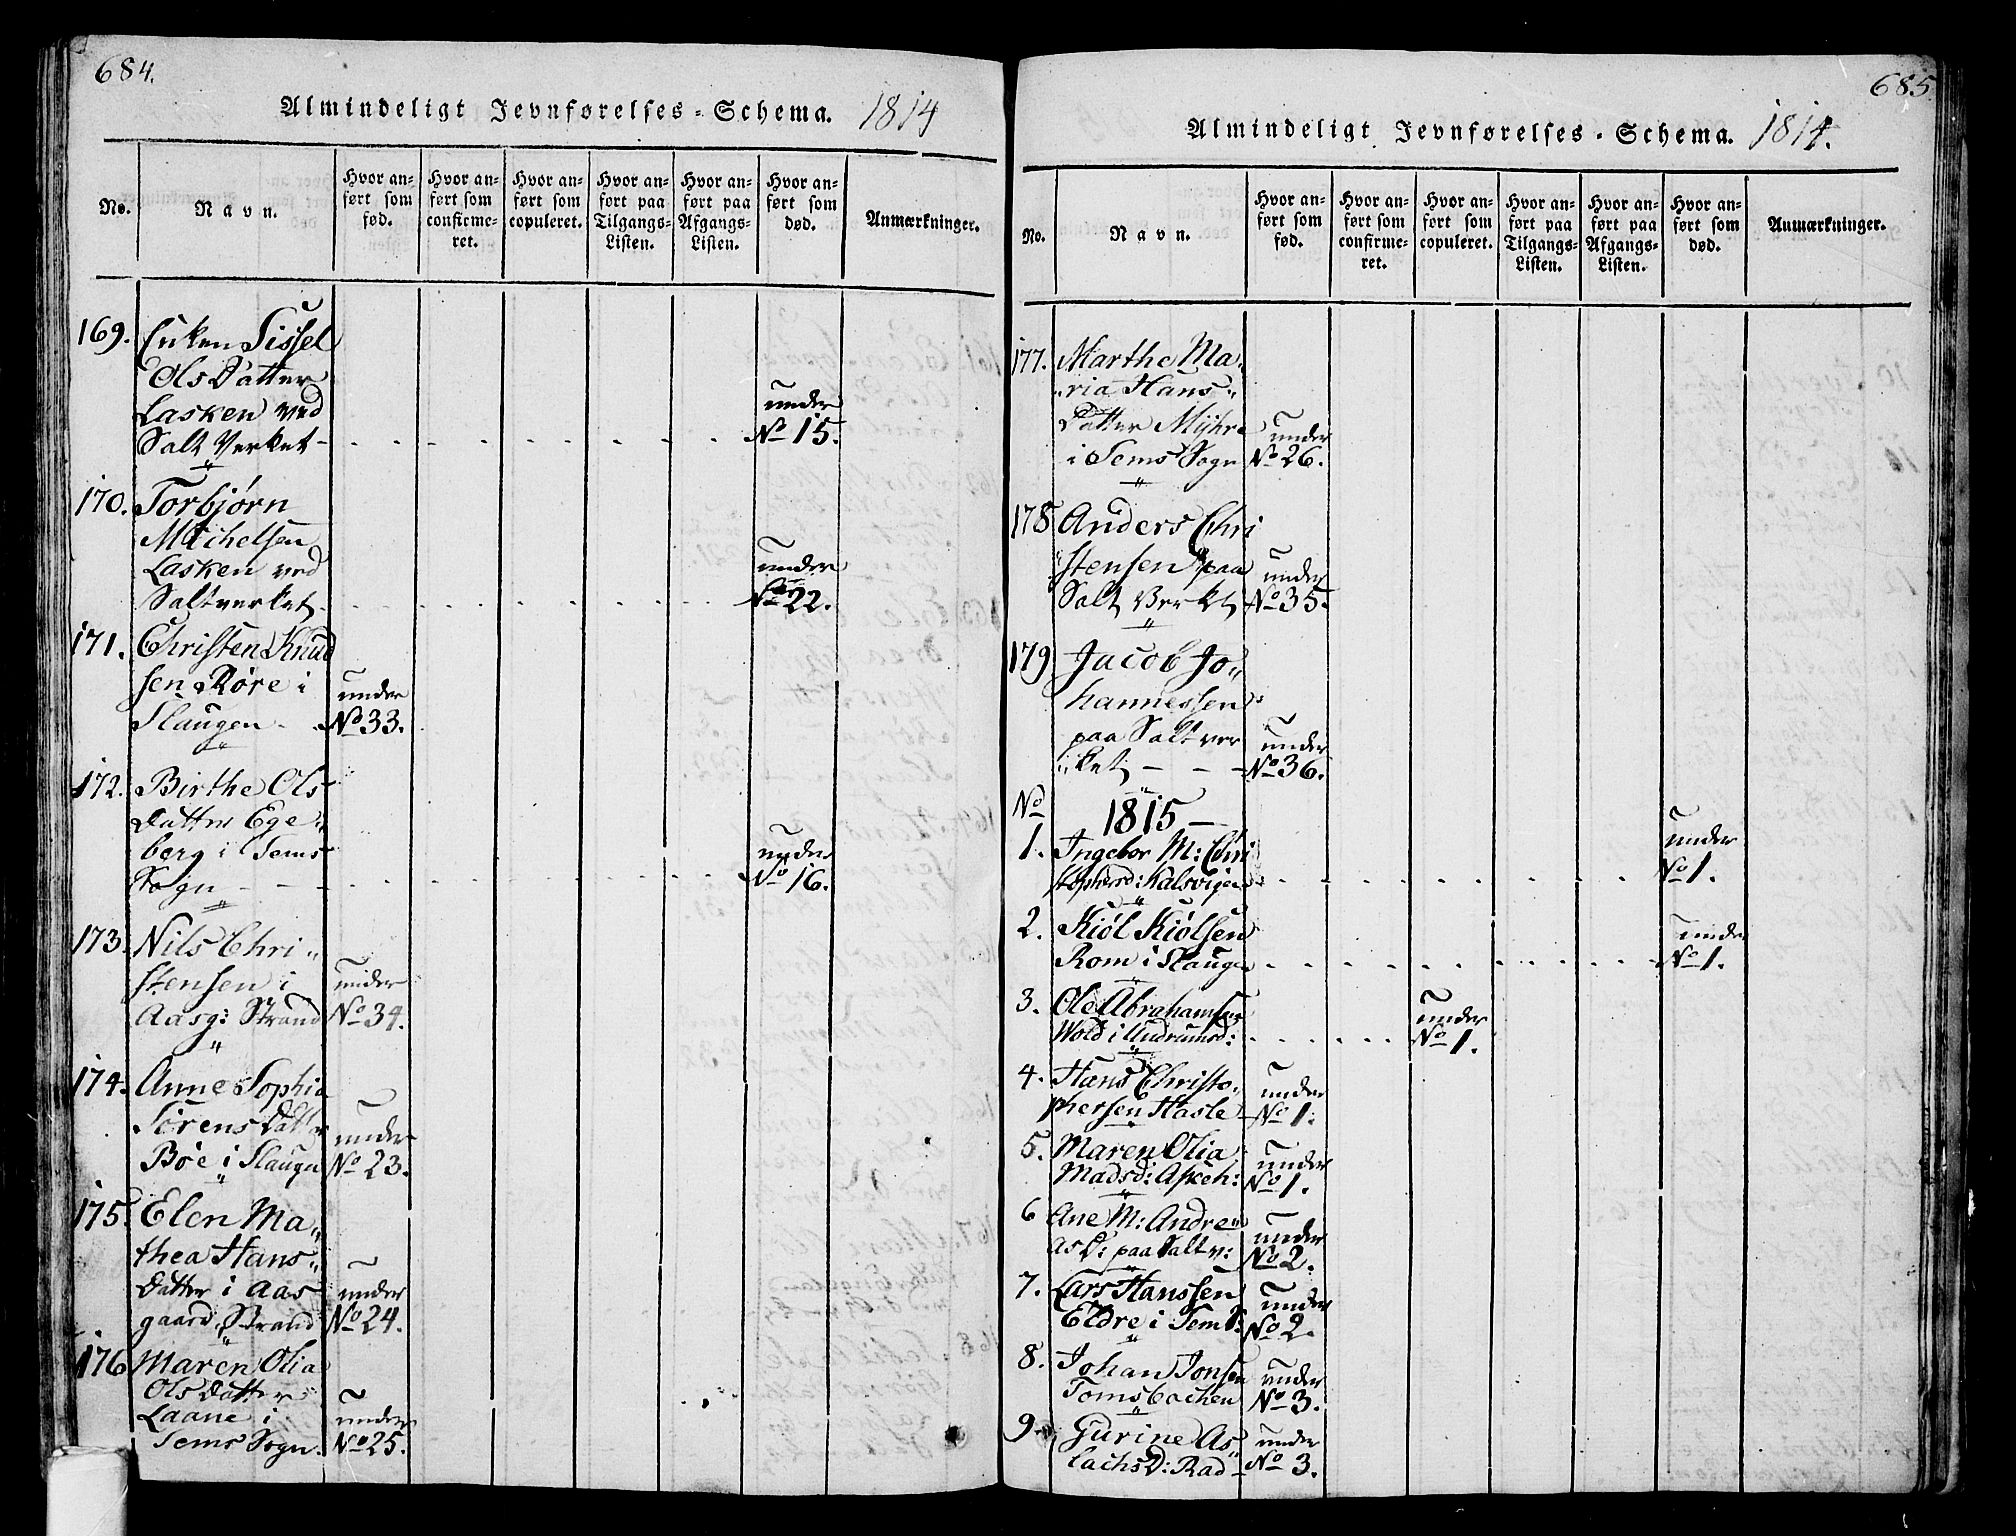 684.
Almindeligt Jevnførelses-Schema. 1814
No.
Navn.
Hvor anført som fød.
Hvor anført som confirmeret.
Hvor anført som copuleret.
Hvor anført paa Tilgangs-Listen.
Hvor anført paa Afgangs-Listen.
Hvor anført som død.
Anmærkninger.
169. Enken Sissel
Ols Datter
Lasken ved
under
Salt Verket
No 15.
170. Torbjørn
Michelsen
Lasken ved
under
Saltverket
No 22.
171. Christen Knud
sen Røre i
under
Slaugen
No 33.
172. Birthe Ols
Datter Ege„
berg i Sems
under
Sogn
No 16.
173. Nils Chri„
stensen i
under
Aasg: Strand
No 34.
174. Anne Sophia
Sørens Datter
under
Bøe i Slaugen
No 23.
175. Elen Ma„
thea Hans„
Datter i Aas
under
gaard Strand
No 24.
176 Maren Olia
Ols Datter
Laane i
under
Sems Sogn.
No 25.
685
Almindeligt Jevnførelses-Schema. 1814.
No.
Navn.
Hvor anført som fød.
Hvor anført som confirmeret.
Hvor anført som copuleret.
Hvor anført paa Tilgangs-Listen.
Hvor anført paa Afgangs-Listen.
Hvor anført som død.
Anmærkninger.
177. Marthe Ma„
„ria Hans„
Datter Myhre
under
i Sems Sogn
No 26.
178 Anders Chri
„stensen paa
under
Salt Verket
No 35.
179 Jacob Jo„
hannessen
paa Saltver
under
„ket
No 36.
No 1815
1. Ingebor M: Chri
under
stophersd: Kalsvigen
No 1.
2. Kiøl Kiølsen
under
Rom i Slaugen
No 1.
3. Ole Abrahamsen
under
Wold i Undrumsd:
No 1.
4. Hans Christo„
under
phersen Hasle
No 1.
5. Maren Olia
under
Madsd: Askeh:
No 1.
6 Ane M: Andre„
under
as D: paa Salt v:
No 2.
7. Lars Hanssen
under
Eldre i Sem S:
No 2.
8. Johan Jonsen
under
Tomsbachen
No 3.
9. Gurine As„
under
lachs D: Rad
No 3.